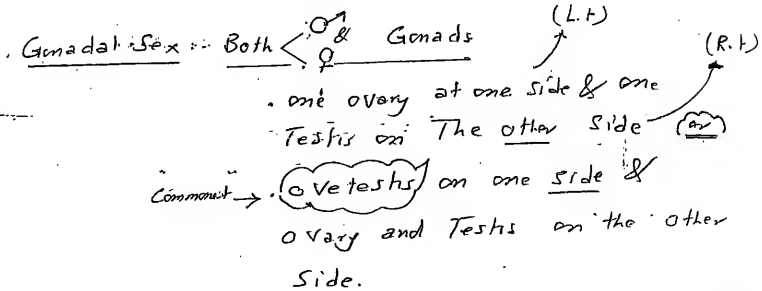 (L.t)
. Gonadal Sex :- Both ♂ & ♀ Gonads
(R.t)
. one ovary at one side & one
Testis on The other Side (or)
Commonest → . Ovetestis on one side &
ovary and Testis on the other
Side.